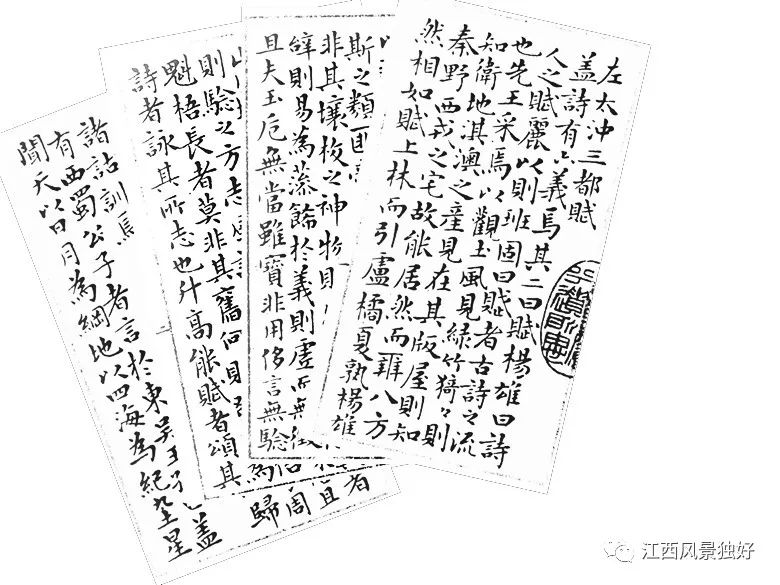 左太冲三都賦
盖詩有六義焉其二曰賦楊雄曰詩
人之賦麗以則班固曰賦者古詩之流
也先王采焉以觀土風見緑竹猗々則
知衛地淇澳之產見在其版屋則知
秦野西戎之宅故能居然而辨八方
然相如賦上林而引盧橘夏熟楊雄
斯之類匪
非其壤校之神物則
辭則易為藻餙於義則虛而無
且夫玉卮無當雖寶非用侈言無驗
則驗之方志
魁梧長者莫非其舊何則
詩者詠其所志也升高能賦者頌其
諸詁訓焉
有西蜀公子者言於東吳王孫 盖
聞天以日月為綱地以四海為紀九土星
江西风景独好